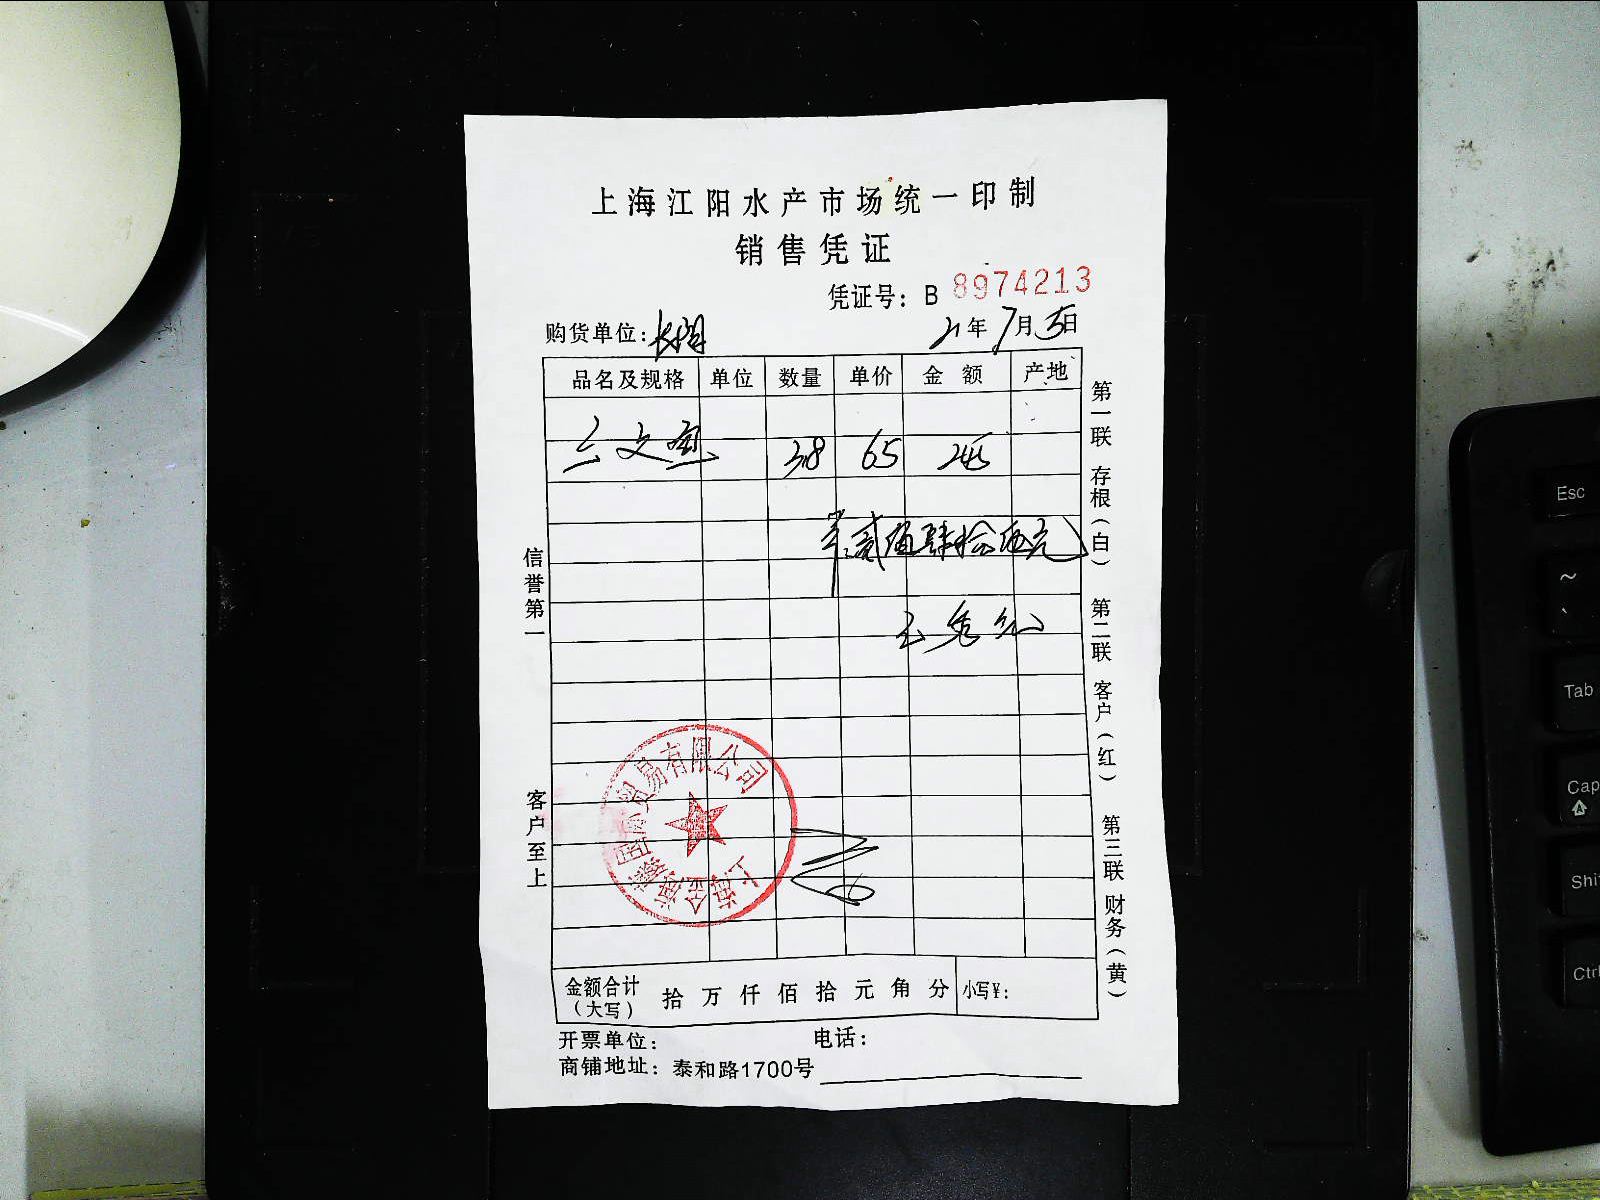 上海江阳水产市场统一印制
销售凭证
凭证号：B 8974213
购货单位：
21年7月5日
品名及规格 单位 数量 单价 金额 产地
三文鱼 3.8 65 245
贰佰肆拾伍元
王秀红
上海金海藤国际贸易有限公司
金额合计（大写） 拾 万 仟 佰 拾 元 角 分 小写¥：
开票单位： 电话：
商铺地址：泰和路1700号
信誉第一
客户至上
第一联 存根（白）
第二联 客户（红）
第三联 财务（黄）
Esc
~
`
Tab
Cap
Shi
Ctrl